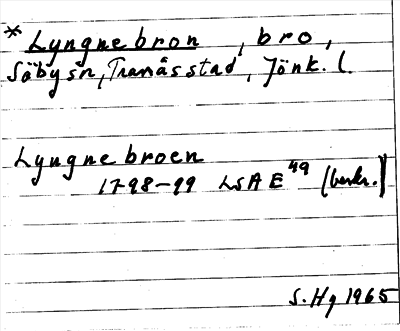 * Lyngnebron, bro,
Säby sn, Tranås stad, Jönk. l.
Lyngnebroen
1798-99 LSA E 49 (beskr.)
S. Hg 1965